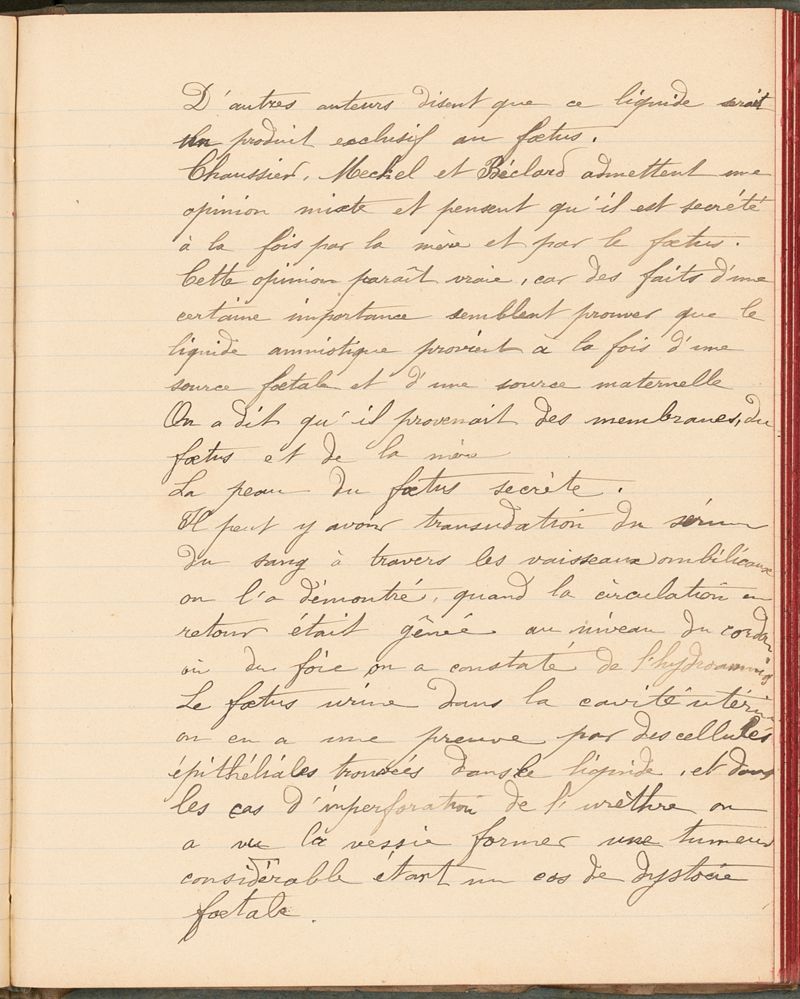 D'autres auteurs disent que ce liquide serait
un produit exclusif au fœtus.
Chaussier, Meckel et Béclard admettent une
opinion mixte et pensent qu'il est secrété
à la fois par la mère et par le fœtus.
Cette opinion paraît vraie, car des faits d'une
certaine importance semblent prouver que le
liquide amniotique provient à la fois d'une
source fœtale et d'une source maternelle
On a dit qu'il provenait des membranes, du
fœtus et de la mère
La peau du fœtus secrète.
Il peut y avoir transudation du sérum
du sang à travers les vaisseaux ombilicaux
on l'a démontré, quand la circulation en
retour était gênée au niveau du cordon
ou du foie on a constaté de l'hydroamnios
Le fœtus urine dans la cavité utérine
on en a une preuve par des cellules
épithéliales trouvées dans le liquide, et dans
les cas d'imperforation de l'urèthre on
a vu la vessie former une tumeur
considérable étant un cas de dystocie
fœtale.